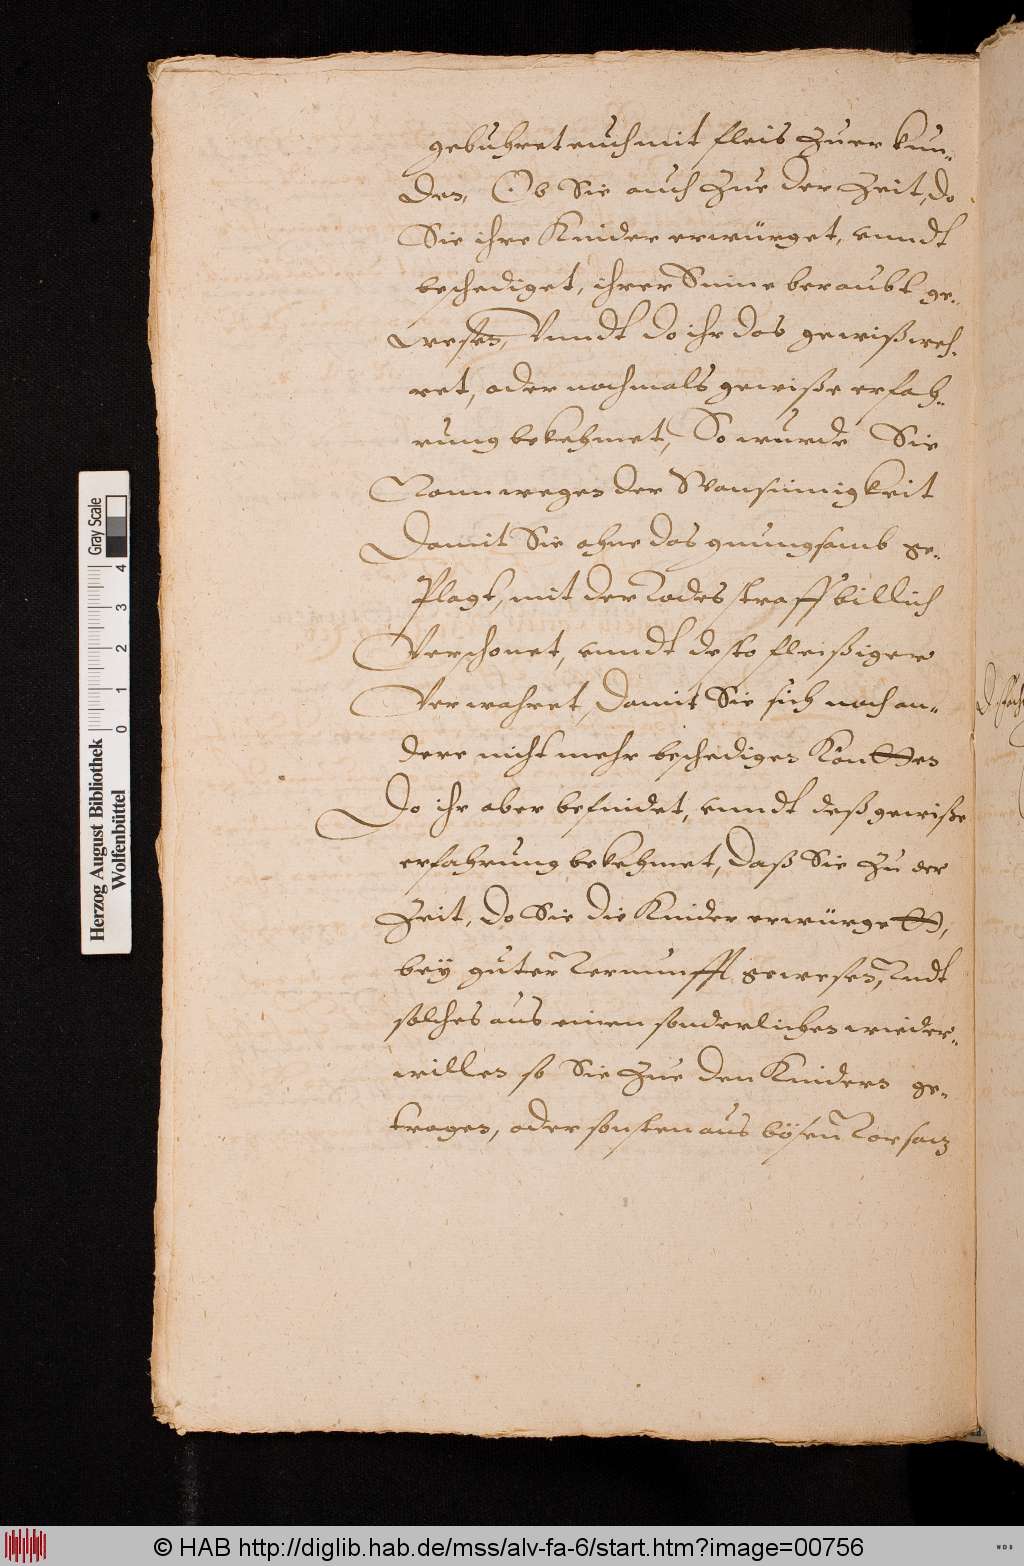 gebuhret euch mit fleis zu er kun-
den, Ob Sie auch zue der Zeit, do
Sie ihre Kinder erwürget, vnndt
beschediget, ihrer Sinne beraubt ge-
wesen, Vnndt do ihr das gewiß weh-
ret, oder nochmals gewiße erfah-
rung bekehmet, So wurde Sie
Vonn wegen der Wansinnigkeit
Damit Sie ohne das gnungsamb ge-
Plagt, mit der Todes straff billich
Verschonet, vnndt desto fleißiger
Verwahret, Damit Sie sich noch an-
dere nicht mehr beschedigen Kontten
Do ihr aber befindet, vnndt deß gewiße
erfahrung bekehmet, Daß Sie zu der
Zeit, Do Sie die Kinder erwürgett,
bey guter Vernunfft gewesen, Vndt
solches aus einen sonderlichen wieder-
willen so Sie zue den Kindern ge-
tragen, oder sonsten aus bösen Vorsatz
Herzog August Bibliothek
Wolfenbüttel
0 1 2 3 4
Gray Scale
© HAB http://diglib.hab.de/mss/alv-fa-6/start.htm?image=00756